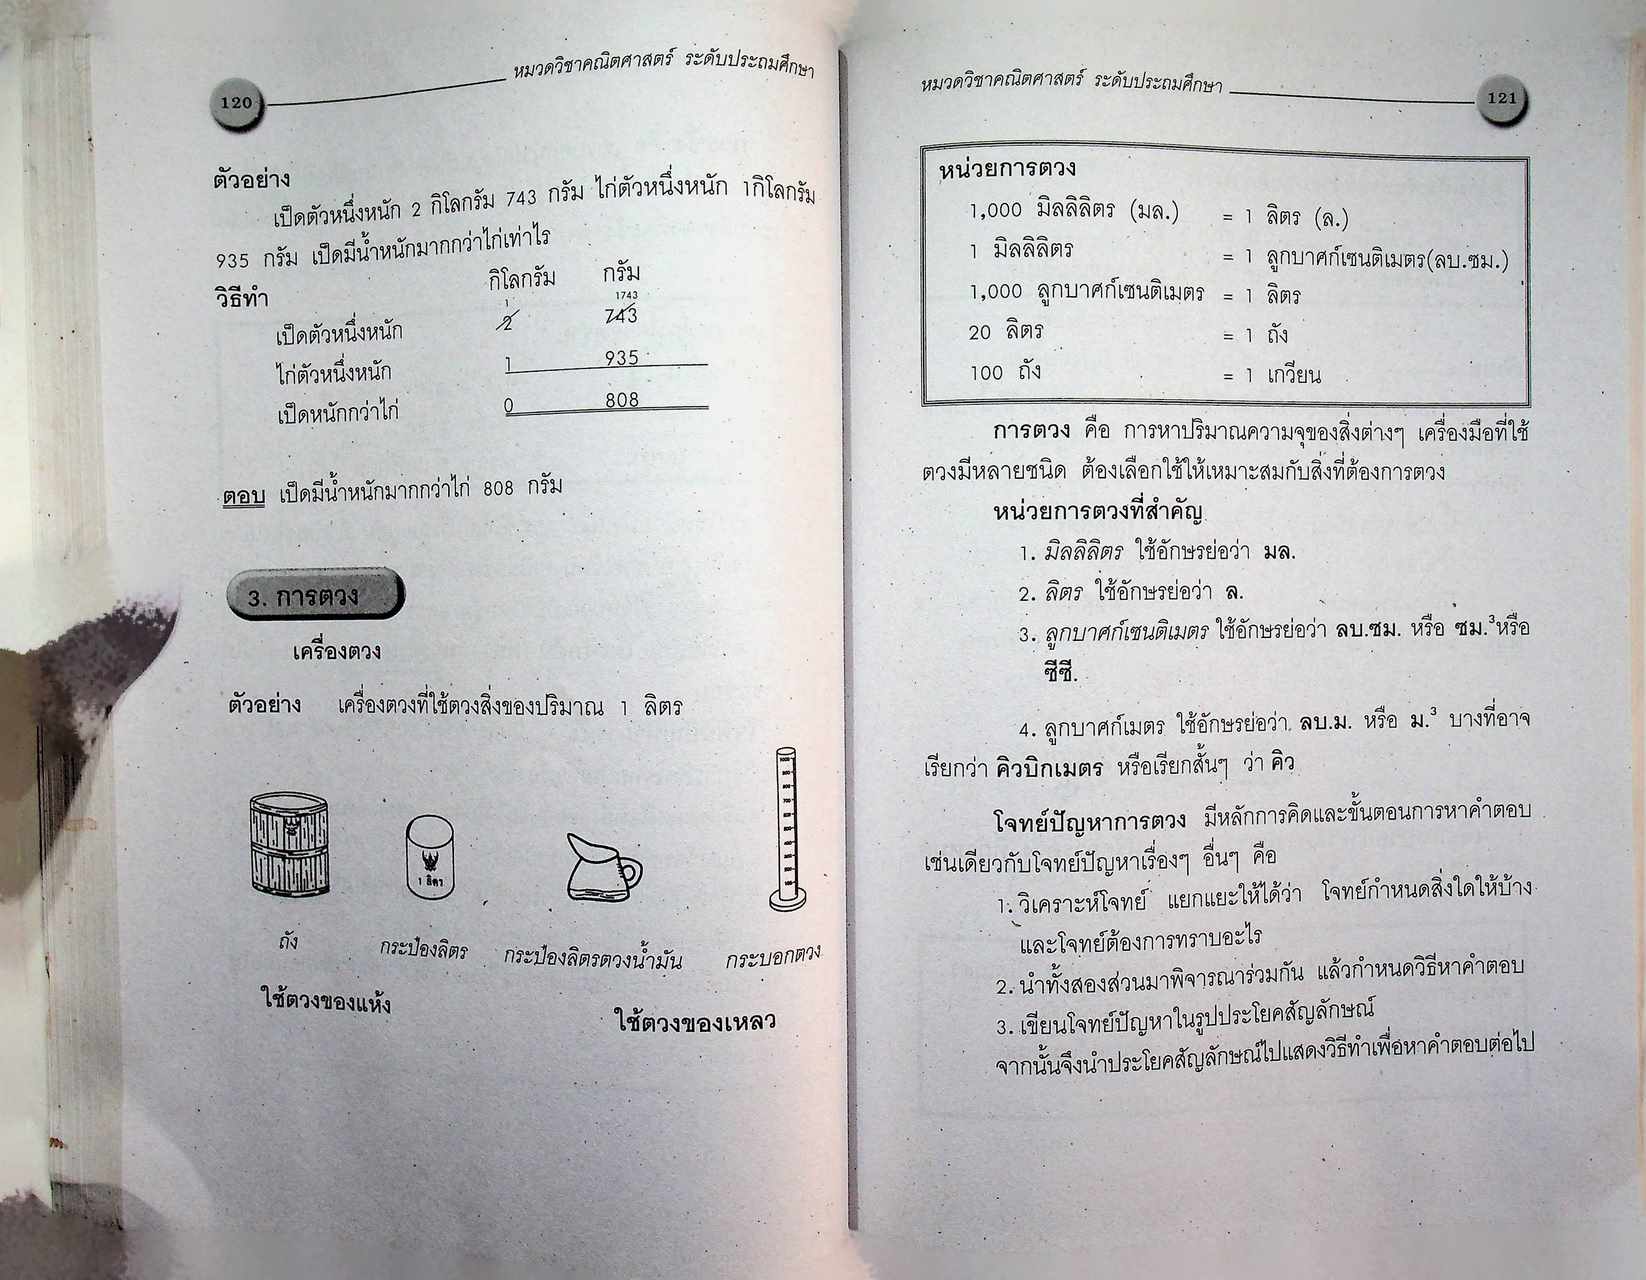 120
หมวดวิชาคณิตศาสตร์ ระดับประถมศึกษา
ตัวอย่าง
เป็ดตัวหนึ่งหนัก 2 กิโลกรัม 743 กรัม ไก่ตัวหนึ่งหนัก 1กิโลกรัม
935 กรัม เป็ดมีน้ำหนักมากกว่าไก่เท่าไร
วิธีทำ กิโลกรัม กรัม
1 1743
เป็ดตัวหนึ่งหนัก 2 743
ไก่ตัวหนึ่งหนัก 1 935
เป็ดหนักกว่าไก่ 0 808
ตอบ เป็ดมีน้ำหนักมากกว่าไก่ 808 กรัม
3. การตวง
เครื่องตวง
ตัวอย่าง เครื่องตวงที่ใช้ตวงสิ่งของปริมาณ 1 ลิตร
1 ลิตร
ถัง กระป๋องลิตร กระป๋องลิตรตวงน้ำมัน กระบอกตวง
ใช้ตวงของแห้ง ใช้ตวงของเหลว
หมวดวิชาคณิตศาสตร์ ระดับประถมศึกษา
121
หน่วยการตวง
1,000 มิลลิลิตร (มล.) = 1 ลิตร (ล.)
1 มิลลิลิตร = 1 ลูกบาศก์เซนติเมตร(ลบ.ซม.)
1,000 ลูกบาศก์เซนติเมตร = 1 ลิตร
20 ลิตร = 1 ถัง
100 ถัง = 1 เกวียน
การตวง คือ การหาปริมาณความจุของสิ่งต่างๆ เครื่องมือที่ใช้
ตวงมีหลายชนิด ต้องเลือกใช้ให้เหมาะสมกับสิ่งที่ต้องการตวง
หน่วยการตวงที่สำคัญ
1. มิลลิลิตร ใช้อักษรย่อว่า มล.
2. ลิตร ใช้อักษรย่อว่า ล.
3. ลูกบาศก์เซนติเมตร ใช้อักษรย่อว่า ลบ.ซม. หรือ ซม.³หรือ
ซีซี.
4. ลูกบาศก์เมตร ใช้อักษรย่อว่า ลบ.ม. หรือ ม.³ บางที่อาจ
เรียกว่า คิวบิกเมตร หรือเรียกสั้นๆ ว่า คิว
โจทย์ปัญหาการตวง มีหลักการคิดและขั้นตอนการหาคำตอบ
เช่นเดียวกับโจทย์ปัญหาเรื่องๆ อื่นๆ คือ
1. วิเคราะห์โจทย์ แยกแยะให้ได้ว่า โจทย์กำหนดสิ่งใดให้บ้าง
และโจทย์ต้องการทราบอะไร
2. นำทั้งสองส่วนมาพิจารณาร่วมกัน แล้วกำหนดวิธีหาคำตอบ
3. เขียนโจทย์ปัญหาในรูปประโยคสัญลักษณ์
จากนั้นจึงนำประโยคสัญลักษณ์ไปแสดงวิธีทำเพื่อหาคำตอบต่อไป